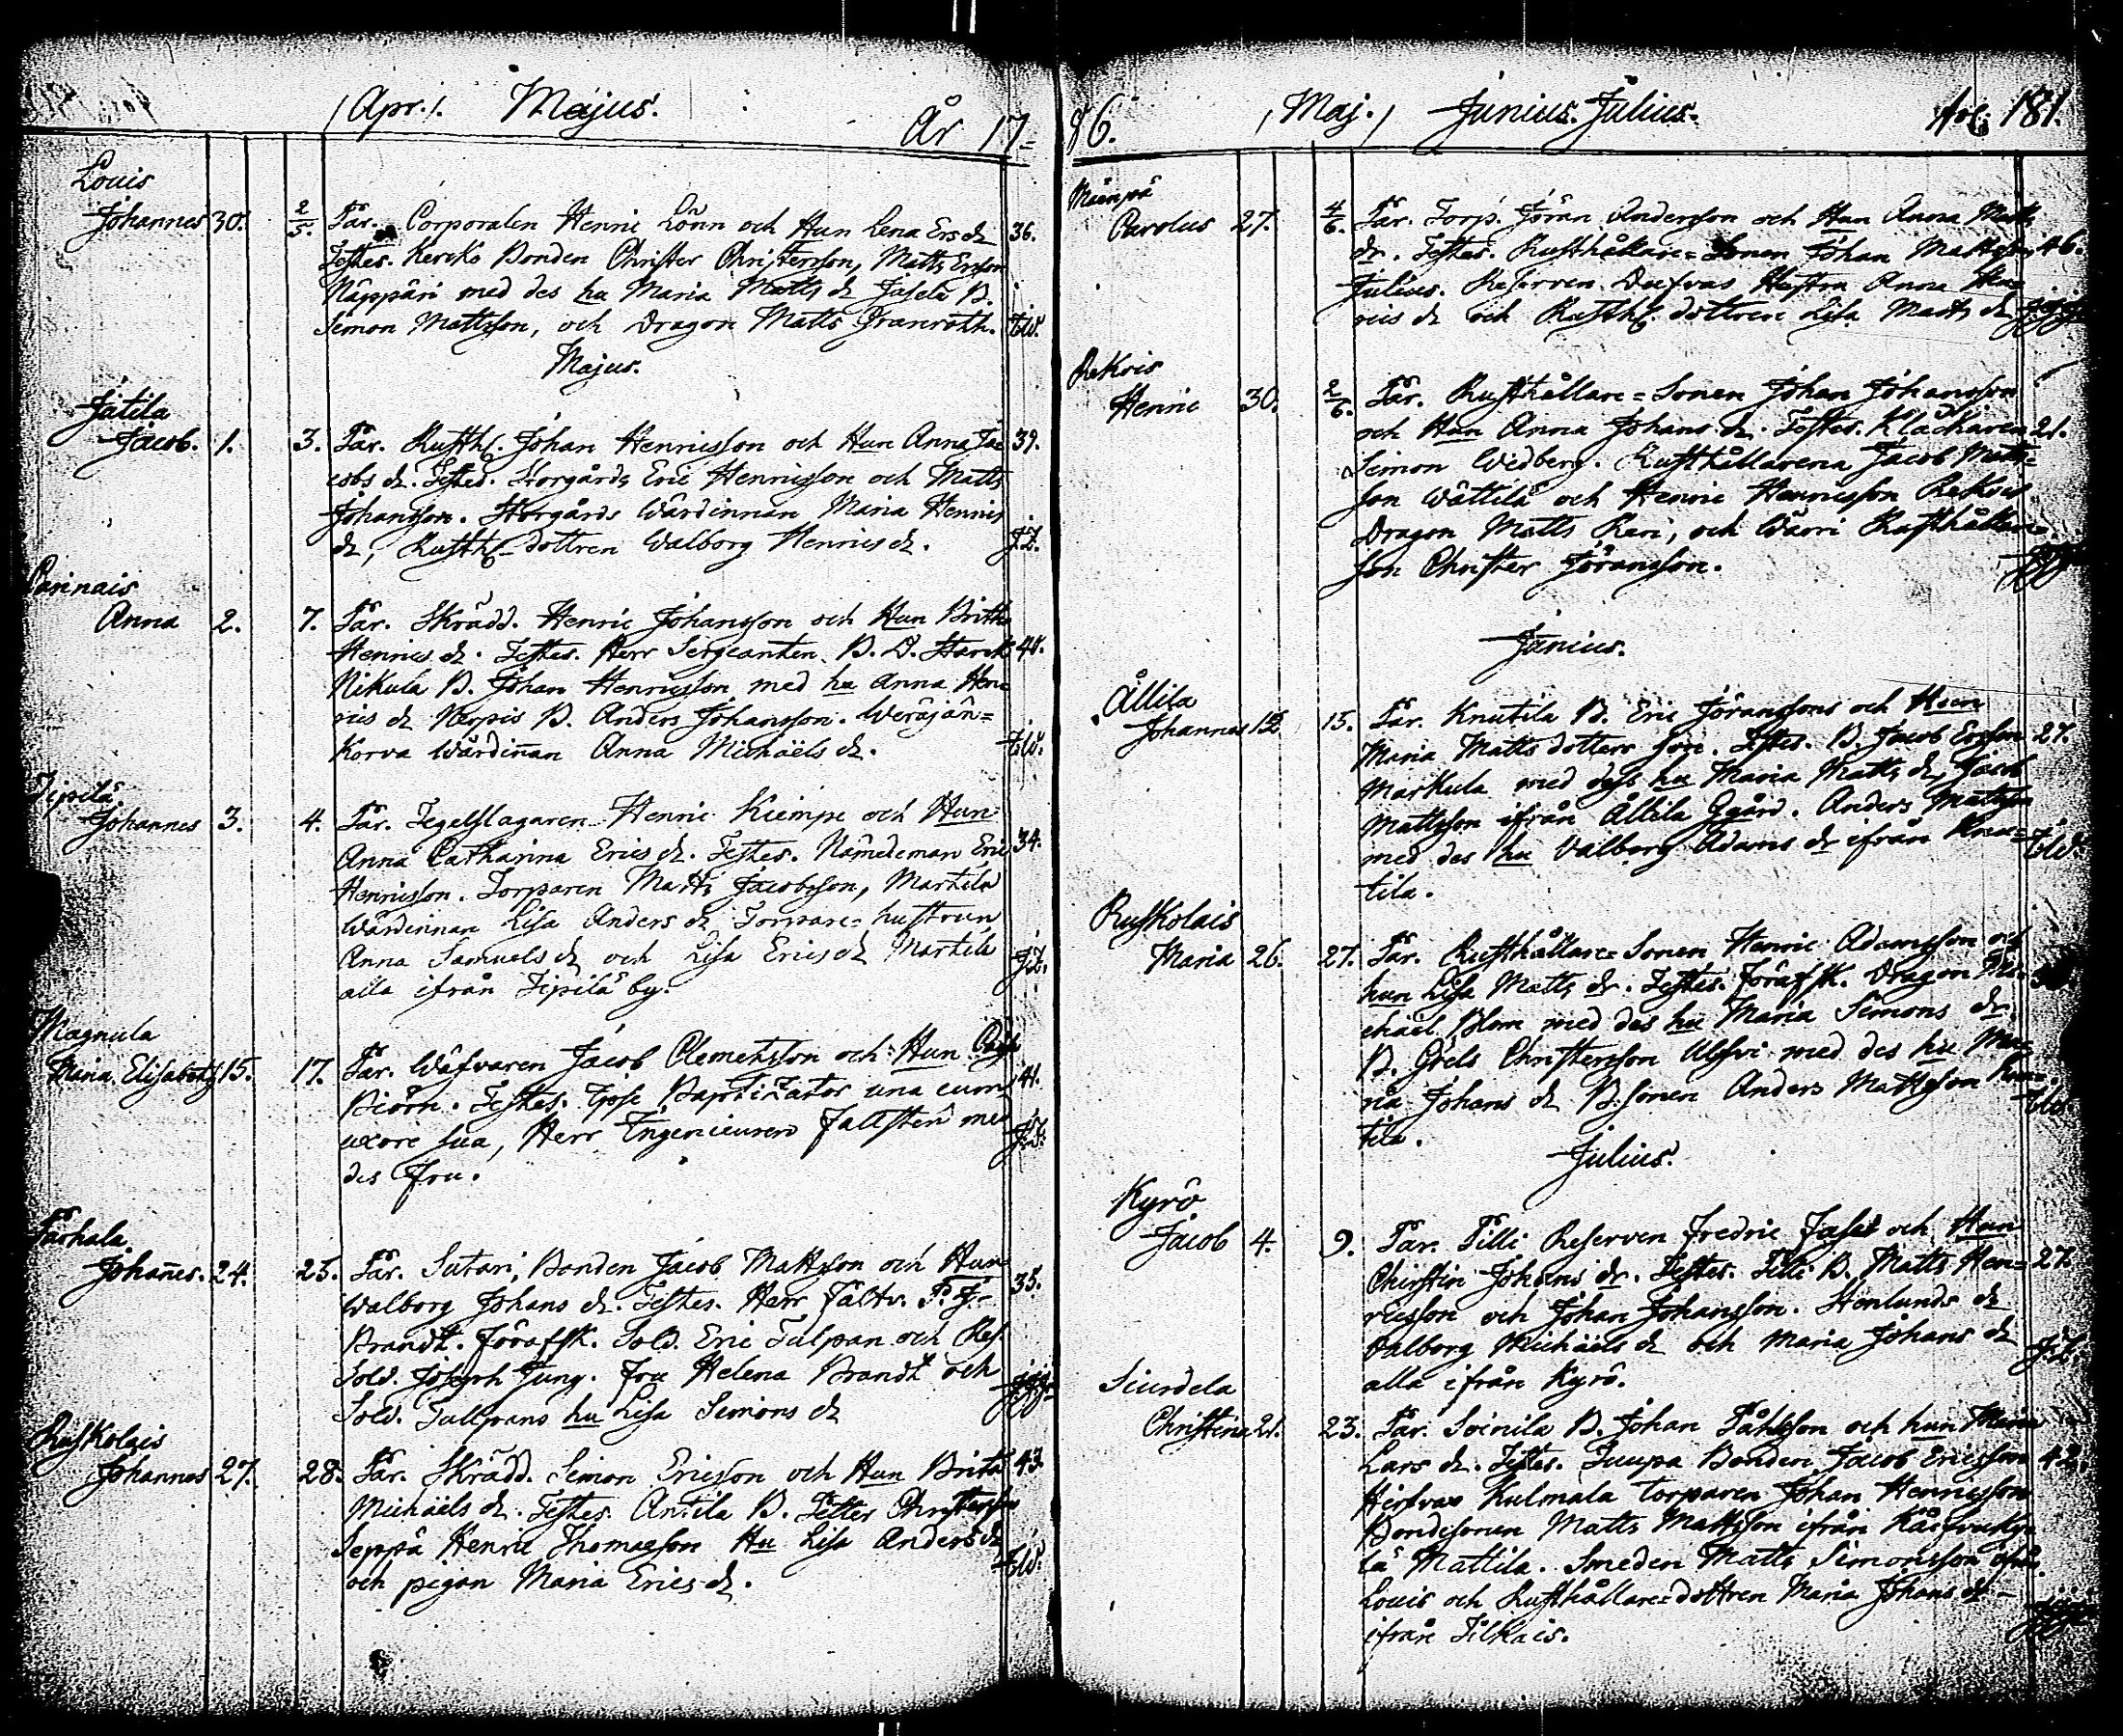 (Apr.) Majus.
År 17=
Louis
Johannes 30. 2/5. Par. Corporalen Henric Lönn och Hun Lena Ers dr 36.
Testes. Kercko Bonden Christer Christersson, Matts Ersson
Näppäri med des hu Maria Matts dr Jasela B.
Simon Mattsson, och Dragon Matts Granroth.
Majus.
Jätila
Jacob. 1. 3. Par. Rusth. Johan Henricsson och Hun Anna Ja= 39.
cobs dr. Testes. Storgårds Eric Henricsson och Matts
Johansson. Storgårds Wärdinnan Maria Henrics
dr, Rusth. dottren Walborg Henrics dr.
Carinais
Anna 2. 7. Par. Skrädd. Henric Johansson och Hun Britha
Henrics dr. Testes. Herr Sergeanten B. D. Starck 40.
Nikula B. Johan Henricsson med hu Anna Hen=
rics dr B. Anders Johansson. Weräjän=
Korva Wärdinnan Anna Michaëls dr.
Tipilä
Johannes 3. 4. Par. Tegelslagaren Henric Kiempe och Hun
Anna Catharina Erics dr. Testes. Nämdeman Eric 34.
Henricsson. Torparen Matts Jacobsson, Martila
Wärdinnan Lisa Anders dr Torpare=hustrun
Anna Samuels dr och Lisa Erics dr Martila
alla ifrån Tipilä by. J.L.
Magnula
Maria Elisabeth 15. 17. Par. Wäfvaren Jacob Clemetsson och Hun Caisa
Biörn. Testes. Ipse Baptizator una cum 41.
uxore sua, Herr Ingenieuren Fallsten med
des fru.
Pärhala
Johannes. 24. 25. Par. Sutari, Bonden Jacob Mattsson och Hun
Walborg Johans dr. Testes. Herr Fältv. P. J. 35.
Brandt. Förafsk. Sold. Eric Tulpan och Res.
Sold. Joseph Jung. Fru Helena Brandt och
Sold. Tullpans hu Lisa Simons dr
Ruskolais
Johannes 27. 28. Par. Skrädd. Simon Ericsson och Hun Brita 43.
Michaëls dr. Testes. Antila B. Petter Christersson
Seppä Henric Thomasson Hu Lisa Anders dr
och pigan Maria Erics dr.
86. (Maj.) Junius. Julius. 181.
Mäenpä
Carolus 27. 4/6. Par. Torp. Jöran Andersson och Hun Anna Matts
dr. Testes. Rusthållare=Sonen Johan Mattsson 46.
Julius. Reserven Dufvas Hustru Anna Hen=
rics dr och Rusth. dottren Lisa Matts dr
Rekois
Henric 30. 2/6. Par. Rusthållare=Sonen Johan Johansson
och Hun Anna Johans dr. Testes. Klåckaren 21.
Simon Widberg. Rusthållarena Jacob Matts=
son Wättilä och Henric Henricsson Rekois.
Dragon Matts Reri, och Wärri Rusthållare=
son Christer Jöransson.
Junius.
Ållila
Johannes 12. 15. Par. Knutila B. Eric Jöranssons och Hun
Maria Matts dotters son. Testes. B. Jacob Ersson 27.
Markula med dess hu Maria Matts dr, Jacob
Mattsson ifrån Ållila Ggård. Anders Mattsson
med des hu Valborg Adams dr ifrån Knu=
tila.
Ruskolais
Maria 26. 27. Par. Rusthållare=Sonen Henric Adamsson och
hun Lisa Matts dr. Testes. Förafsk. Dragon Mi=
chaël Blom med des hu Maria Simons dr.
B. Grels Christersson Ulssvi med des hu Ma=
ria Johans dr B. sonen Anders Mattsson Knu=
tila.
Julius.
Kyrö
Jacob 4. 9. Par. Pilli Reserven Fredric Fast och Hun
Christin Johans dr. Testes. Pilli B. Matts Hen= 27.
ricsson och Johan Johansson. Stenlunds dr
Valborg Michäels dr och Maria Johans dr
alla ifrån Kyrö. J.L.
Siurdela
Christina 21. 23. Par. Soinila B. Johan Påhlsson och hun Maria
Lars dr. Testes. Juupa Bonden Jacob Ericsson 42.
Hirfvas Kulmala torparen Johan Henricsson
Bondesonen Matts Mattsson ifrån Karfvuky=
lä Mattila. Smeden Matts Simonsson ifrån
Louis och Rusthållare=dottren Maria Johans dr
ifrån Tilkais.